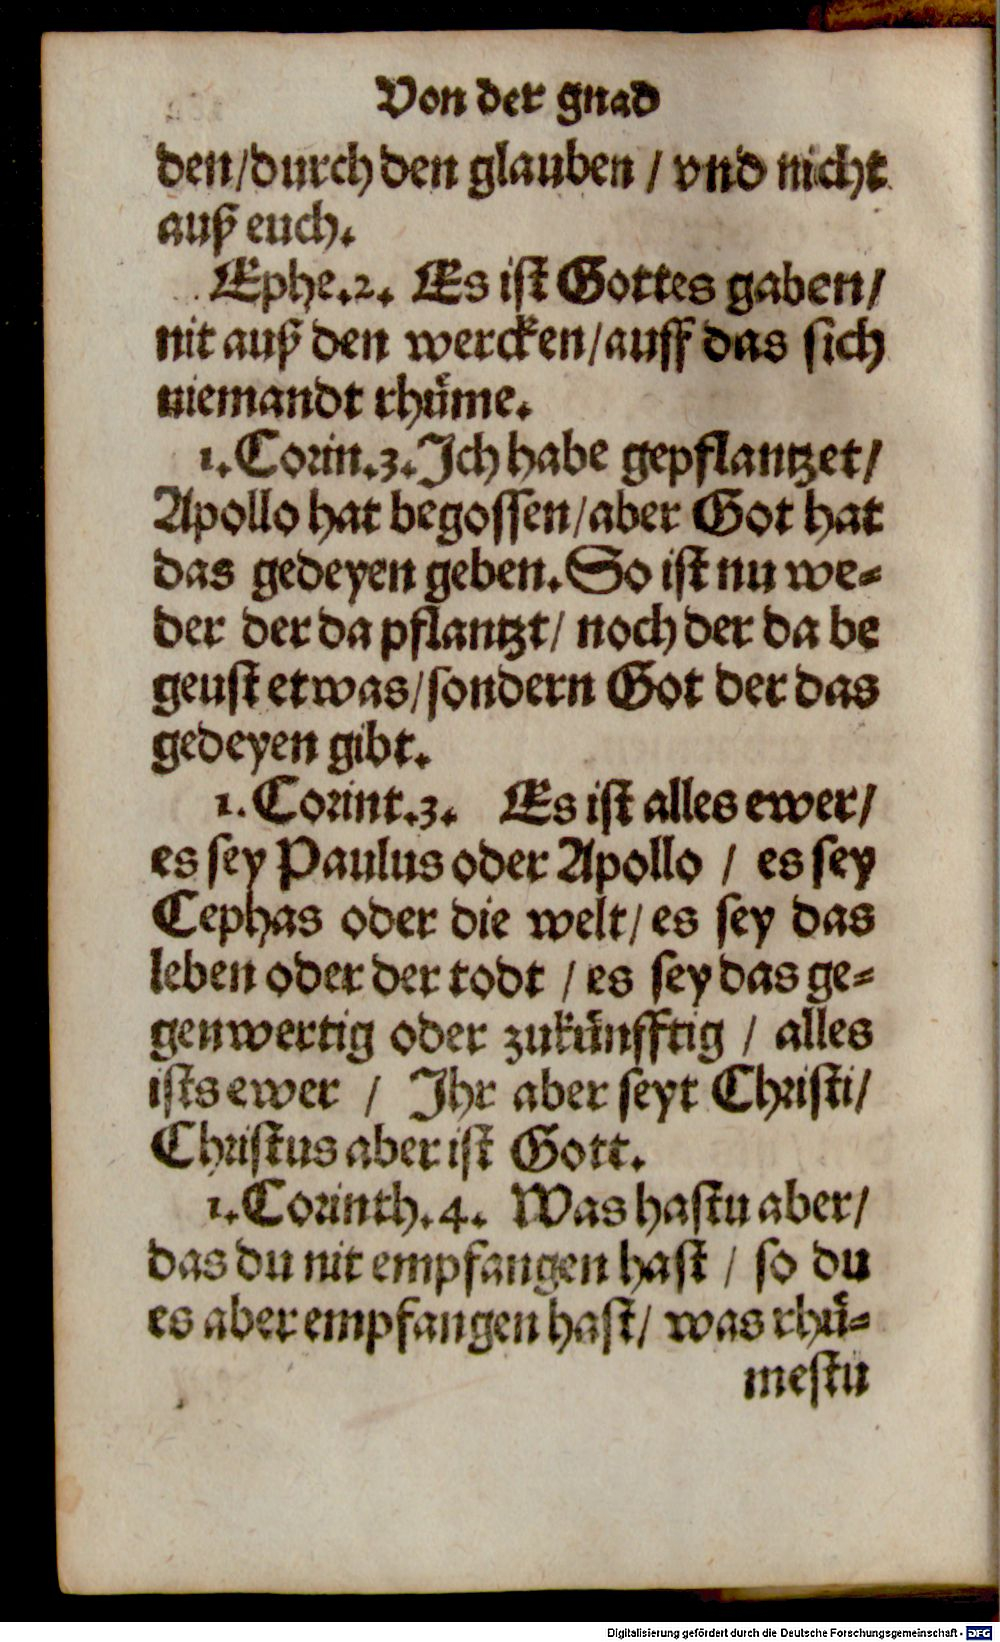 Von der gnad
den/durch den glauben / vnd nicht
auß euch.
Ephe.2. Es ist Gottes gaben/
nit auß den wercken/auff das sich
niemandt rhuͤme.
1. Corin.3. Ich habe gepflantzet/
Apollo hat begossen/aber Got hat
das gedeyen geben. So ist nu we=
der der da pflantzt/ noch der da be
geust etwas/sondern Got der das
gedeyen gibt.
1. Corint.3. Es ist alles ewer/
es sey Paulus oder Apollo / es sey
Cephas oder die welt/ es sey das
leben oder der todt / es sey das ge=
genwertig oder zukuͤnfftig / alles
ists ewer / Ihr aber seyt Christi/
Christus aber ist Gott.
1. Corinth.4. Was hastu aber/
das du nit empfangen hast / so du
es aber empfangen hast/ was rhuͤ=
mestu
Digitalisierung gefördert durch die Deutsche Forschungsgemeinschaft - DFG